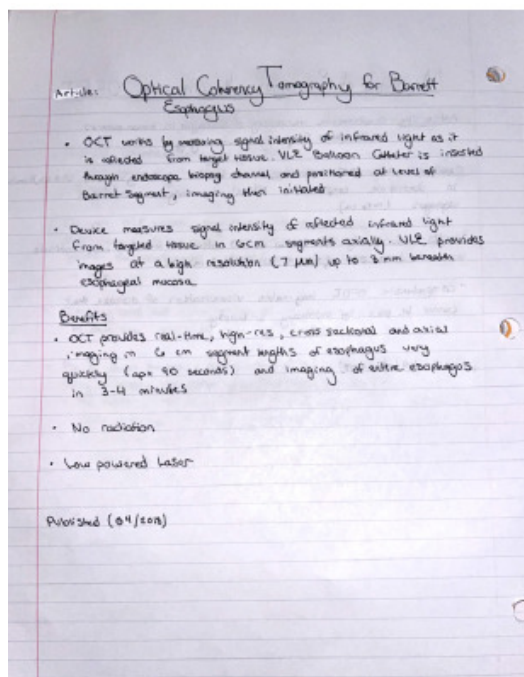 Article: Optical Coherency Tomography for Barrett
Esophagus
• OCT works by measuring signal intensity of infrared light as it
is reflected from target tissue. VLE Balloon Catheter is inserted
through endoscope biopsy channel and positioned at level of
Barret Segment, imaging then initiated
• Device measures signal intensity of reflected infrared light
from targeted tissue in 6cm segments axially. VLE provides
images at a high resolution (7 µm) up to 3mm beneath
esophageal mucosa
Benefits
• OCT provides real-time, high-res, cross sectional and axial
imaging in 6 cm segment lengths of esophagus very
quickly (apx 90 seconds) and imaging of entire esophagus
in 3-4 minutes
• No radiation
• Low powered Laser
Published (04/2018)